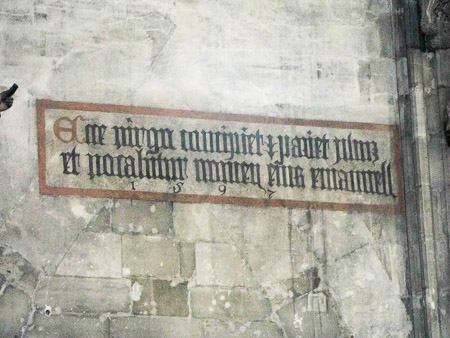 Ecce virgo concipiet ⁊ pariet filiuz
et vocabitur nomen eius emanuell
1597